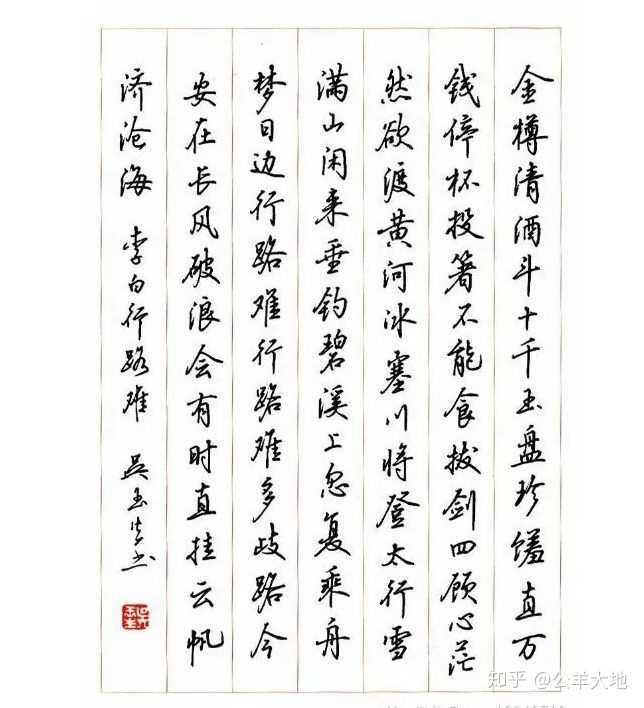 金樽清酒斗十千玉盘珍馐直万
钱停杯投箸不能食拔剑四顾心茫
然欲渡黄河冰塞川将登太行雪
满山闲来垂钓碧溪上忽复乘舟
梦日边行路难行路难多歧路今
安在长风破浪会有时直挂云帆
济沧海 李白行路难 吴玉生书
知乎 @公羊大地